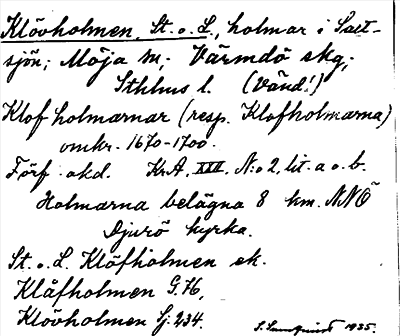 Klövholmen, St. o. L., holmar i Salt-
sjön; Möja sn; Värmdö skg;
Sthlms l. (Vänd!)
Klofholmarnar (resp. Klofholmarna)
omkr. 1670-1700.
Förf. okd. KrA, XIII, N:o 2, lit. a o. b.
Holmarna belägna 8 km. NNÖ
Djurö kyrka.
St. o. L. Klöfholmen ek.
Klåfholmen G.K.,
Klövholmen Sj. 234.
1935.